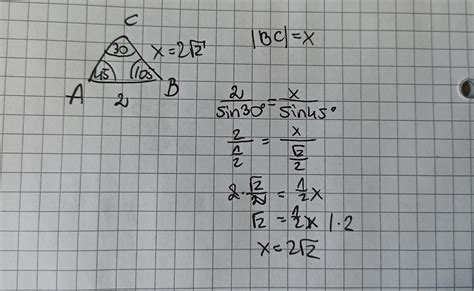 C
30 x=2√2
45 105
A 2 B
|BC|=x
2/sin30° = x/sin45°
2/(1/2) = x/(√2/2)
2·√2/2 = 1/2x
√2 = 1/2x |·2
x=2√2